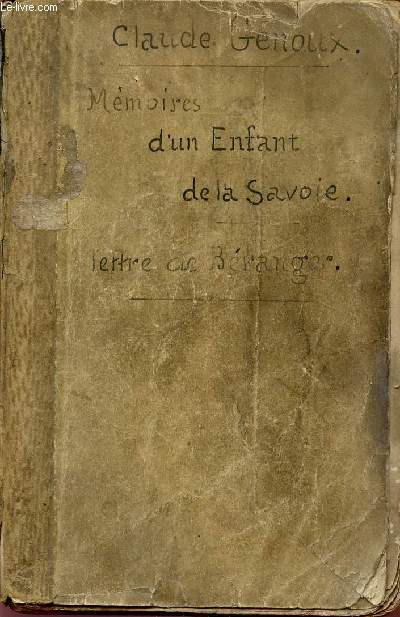 Le-livre.com
Claude Genoux.
Mémoires
d'un Enfant
de la Savoie.
lettre de Béranger.